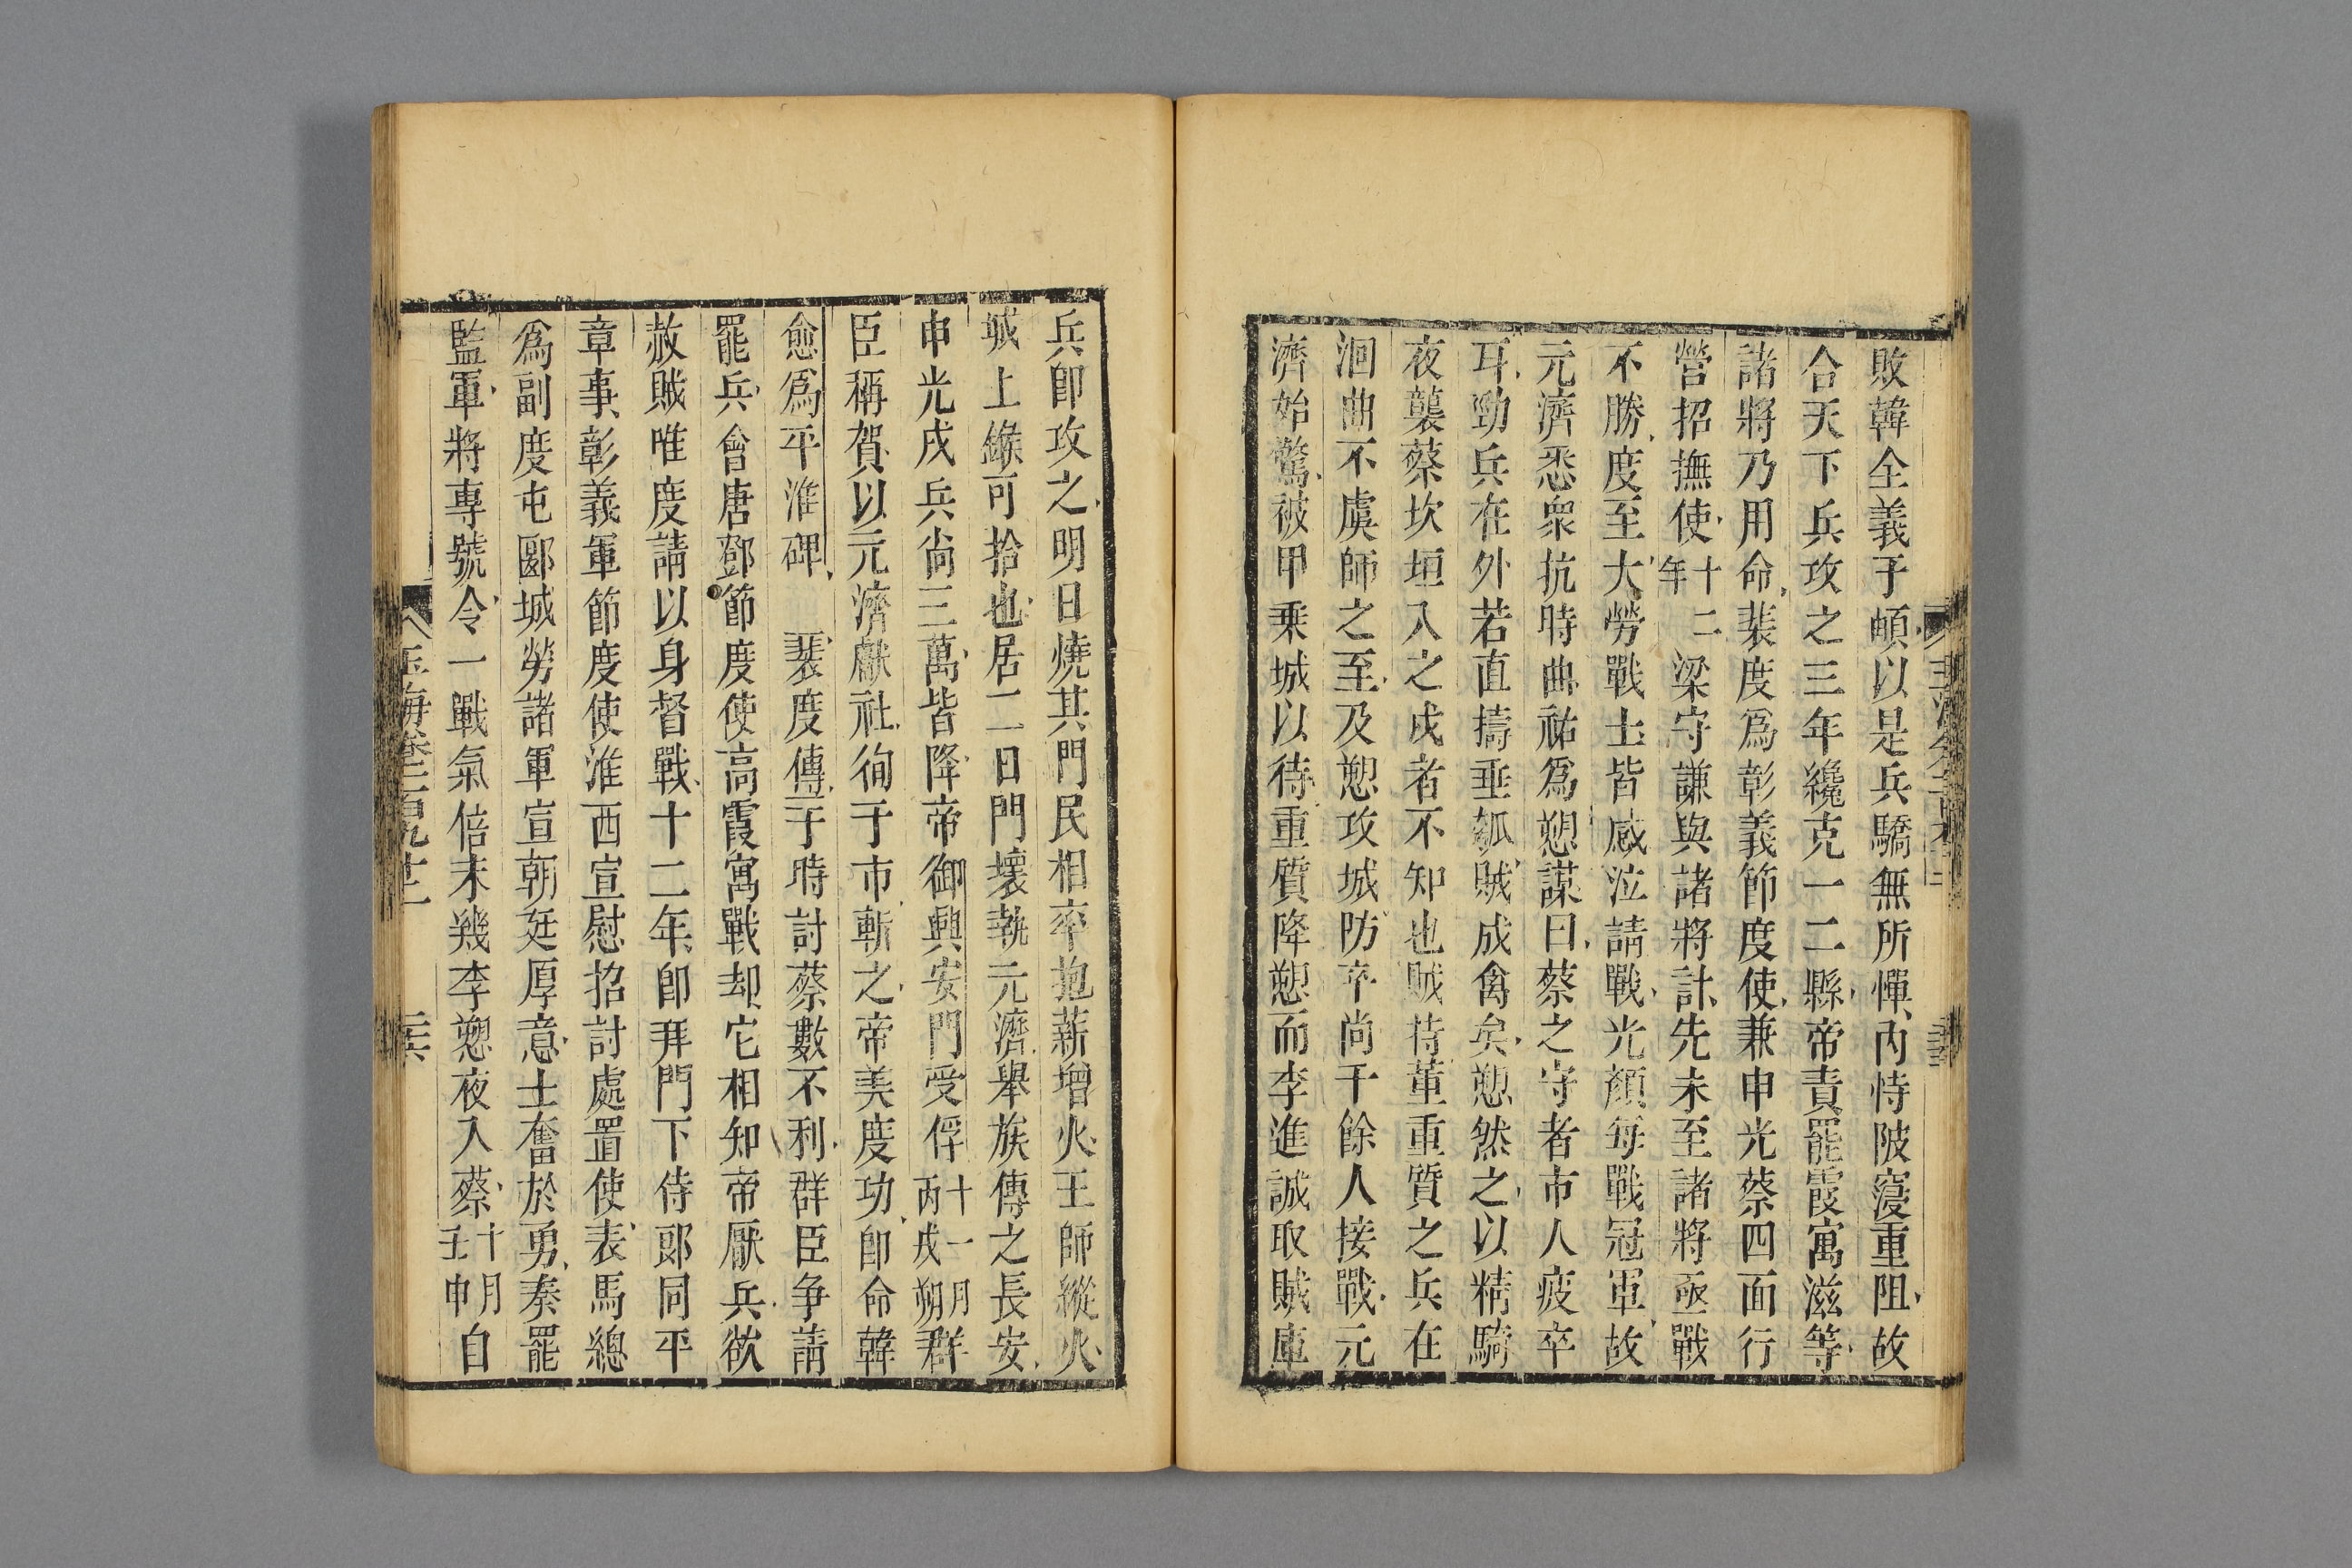 敗韓全義于頔以是兵驕無所憚內恃陂寖重阻故
合天下兵攻之三年纔克一二縣帝責罷霞寓滋等
諸將乃用命裴度爲彰義節度使兼申光蔡四面行
營招撫使十二年梁守謙與諸將計先未至諸將亟戰
不勝度至大勞戰士皆感泣請戰光顏每戰冠軍故
元濟悉衆抗時曲祐爲愬謀曰蔡之守者市人疲卒
耳勁兵在外若直擣垂瓠賊成禽矣愬然之以精騎
夜襲蔡坎垣入之戍者不知也賊恃董重質之兵在
洄曲不虞師之至及愬攻城防卒尚千餘人接戰元
濟始驚被甲乗城以待重質降愬而李進誠取賊庫
兵卽攻之明日燒其門民相率抱薪增火王師縱火
城上鏃可拾也居二日門壞執元濟舉族傳之長安
申光戍兵尚三萬皆降帝御興安門受俘十一月丙戌朔群
臣稱賀以元濟獻社徇于市斬之帝美度功卽命韓
愈爲平淮碑 裴度傳于時討蔡數不利群臣争請
罷兵會唐鄧節度使高霞寓戰却它相知帝厭兵欲
赦賊唯度請以身督戰十二年卽拜門下侍郎同平
章事彰義軍節度使淮西宣慰招討處置使表馬總
爲副度屯郾城勞諸軍宣朝廷厚意士奮於勇奏罷
監軍將專號令一戰氣倍未幾李愬夜入蔡十月壬申自